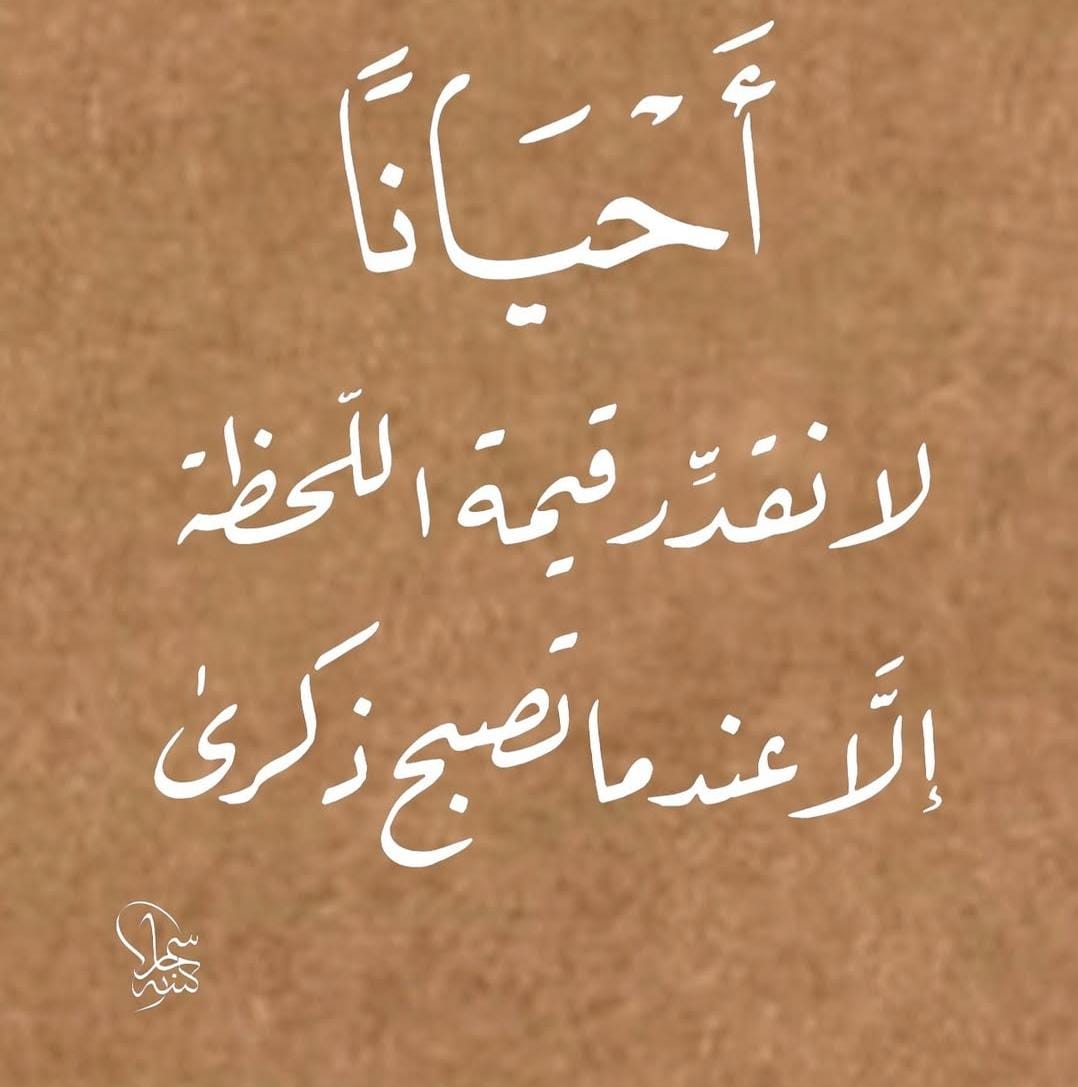 أَحْيَانًا
لا نقدِّر قيمة اللّحظة
إلَّا عندما تصبح ذكرىٰ